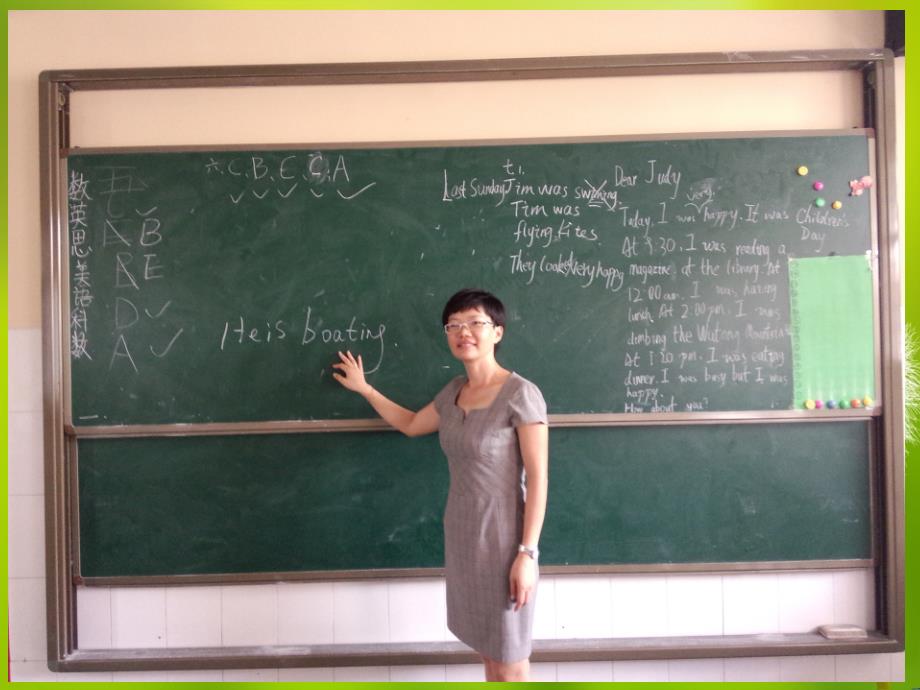 数英思美語科数
五
C ✓
A B
B E
D ✓
A ✓
一.
六. C. B. E. C. A
✓ ✓ ✓ ✓ ✓
He is boating.
t i.
Last Sunday Jim was swimming.
Tim was
flying kites.
They looked very happy
Dear Judy
very
Today, I was happy. It was Children's Day
At 9:30. I was reading a
magazine. at the library. At
12:00 am. I was having
lunch. At 2:00 pm. I was
climbing the Wutong Mountain
At 7:20 pm. I was eating
dinner. I was busy but I was
happy.
How about you?